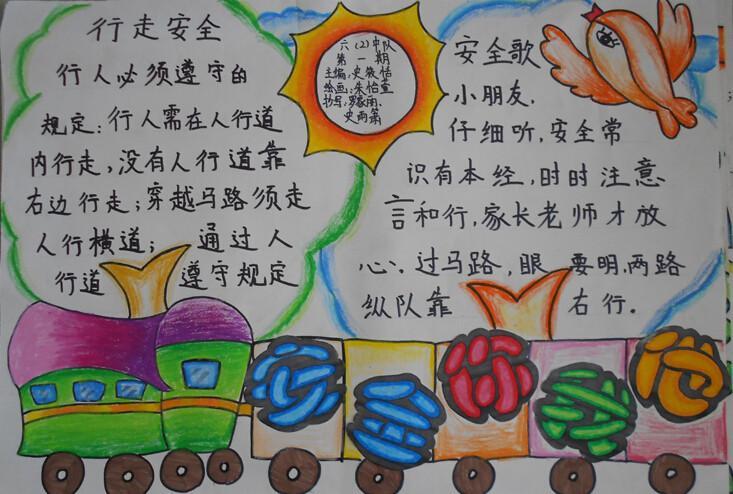 行走安全
行人必须遵守的
规定：行人需在人行道
内行走，没有人行道靠
右边行走；穿越马路须走
人行横道；通过人
行道遵守规定
六（2）中队
第一期
主编：史筱恬
绘画：朱怡萱
抄写：罗馨雨、
史雨箫
安全歌
小朋友，
仔细听，安全常
识有本经，时时注意
言和行，家长老师才放
心，过马路，眼要明，两路
纵队靠右行。
安全你我他